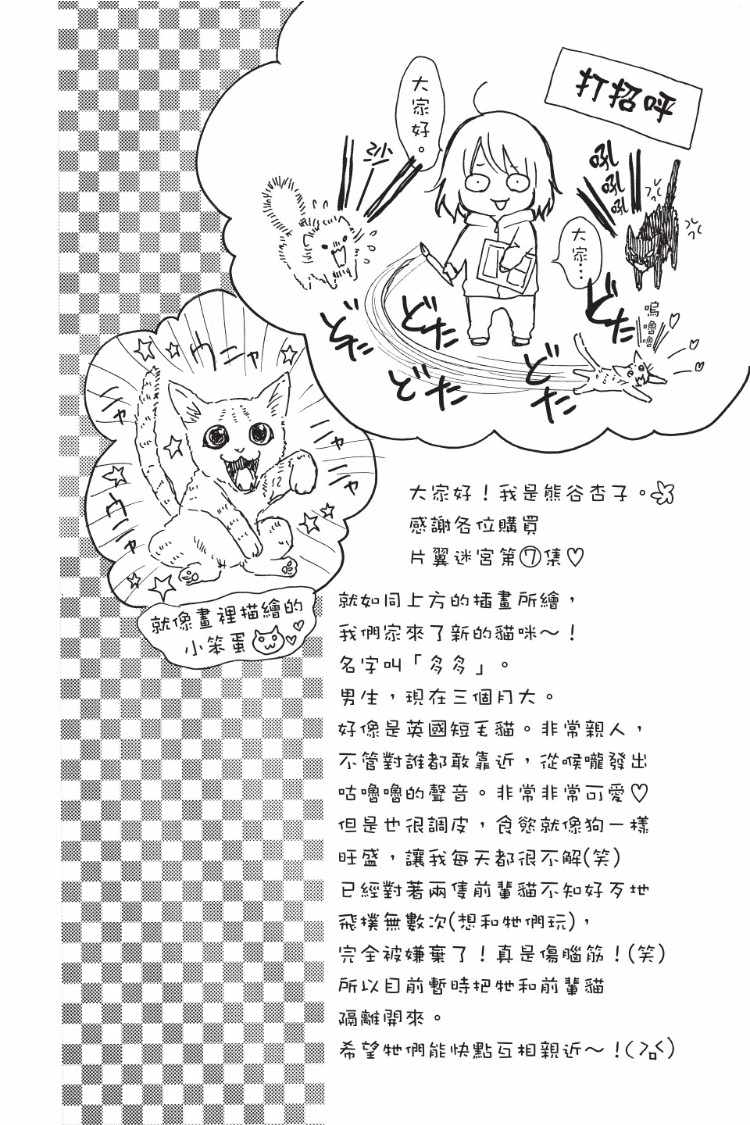 打招呼
大家好。
沙
吼吼吼
大家…
嗚嚕嚕
どたどたどたどたどたどた
ウニャ
ニャ
ウニャ
ニャニャ
就像畫裡描繪的
小笨蛋
大家好！我是熊谷杏子。
感謝各位購買
片翼迷宮第⑦集♡
就如同上方的插畫所繪，
我們家來了新的貓咪～！
名字叫「多多」。
男生，現在三個月大。
好像是英國短毛貓。非常親人，
不管對誰都敢靠近，從喉嚨發出
咕嚕嚕的聲音。非常非常可愛♡
但是也很調皮，食慾就像狗一樣
旺盛，讓我每天都很不解(笑)
已經對著兩隻前輩貓不知好歹地
飛撲無數次(想和牠們玩)，
完全被嫌棄了！真是傷腦筋！(笑)
所以目前暫時把牠和前輩貓
隔離開來。
希望牠們能快點互相親近～！